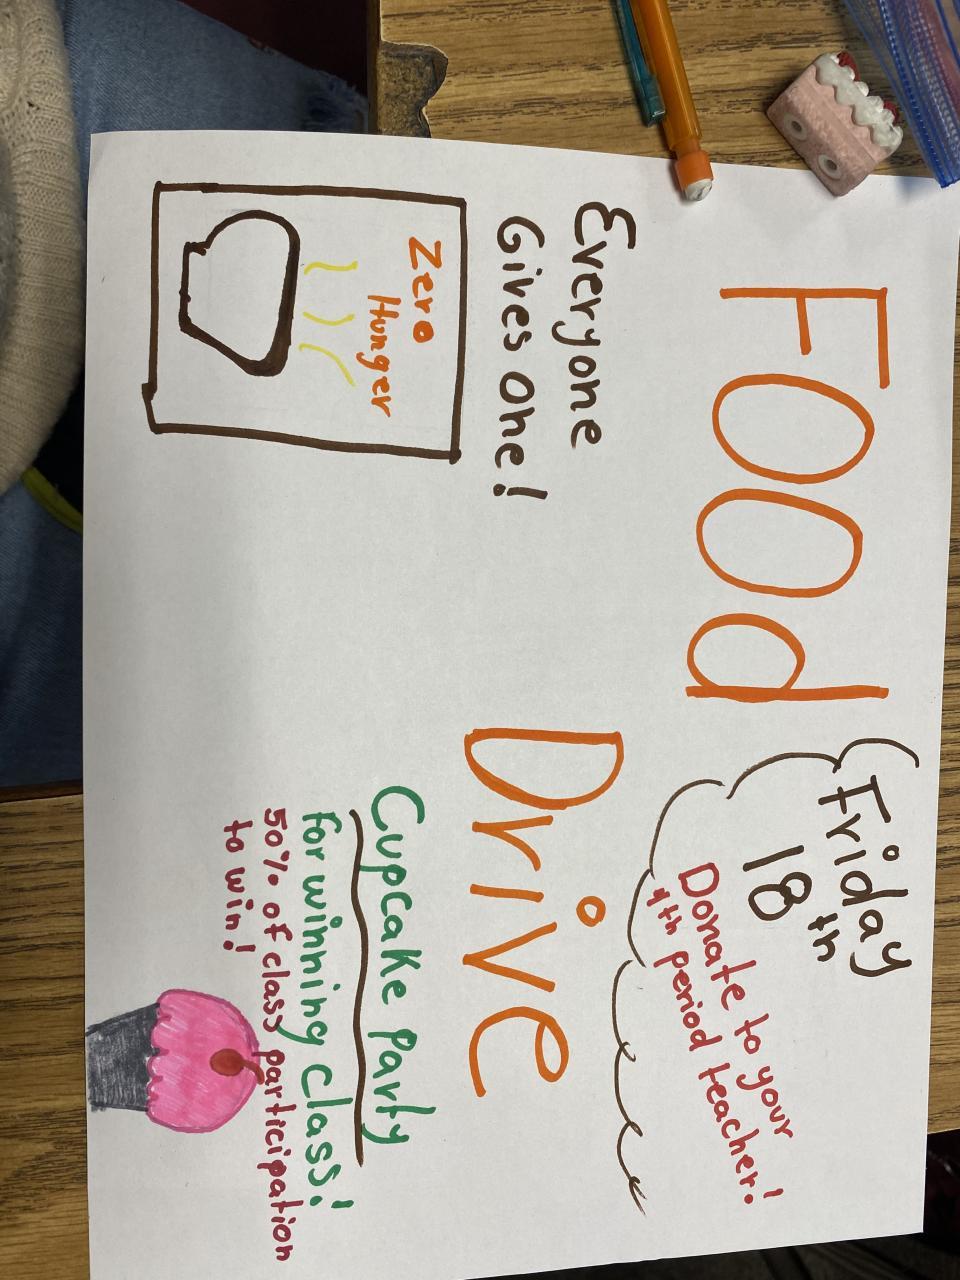 Food
Drive
Friday
18th
Donate to your
4th period teacher!
Everyone
Gives one!
Zero
Hunger
Cupcake Party
for winning class!
50% of class participation
to win!